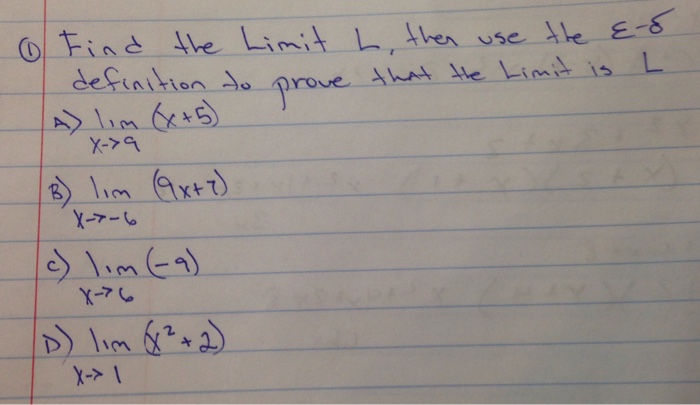 ① Find the Limit L, then use the ε-δ
definition to prove that the Limit is L
A) lim (x+5)
x->9
B) lim (9x+7)
x->-6
c) lim (-9)
x->6
D) lim (x² + 2)
x-> 1